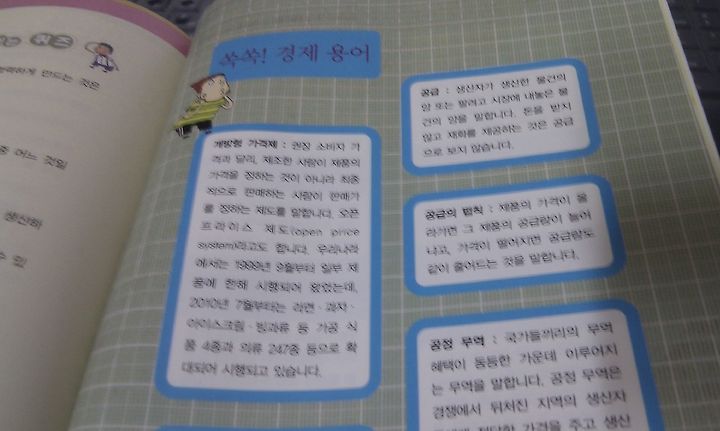 퀴즈
하게 만드는 것은
중 어느 것일
생산하
수 있
쏙쏙! 경제 용어
개방형 가격제 : 권장 소비자 가
격과 달리, 제조한 사람이 제품의
가격을 정하는 것이 아니라 최종
적으로 판매하는 사람이 판매가
를 정하는 제도를 말합니다. 오픈
프라이스 제도(open price
system)라고도 합니다. 우리나라
에서는 1999년 9월부터 일부 제
품에 한해 시행되어 왔었는데,
2010년 7월부터는 라면·과자·
아이스크림·빙과류 등 가공 식
품 4종과 의류 247종 등으로 확
대되어 시행되고 있습니다.
공급 : 생산자가 생산한 물건의
양 또는 팔려고 시장에 내놓은 물
건의 양을 말합니다. 돈을 받지
않고 재화를 제공하는 것은 공급
으로 보지 않습니다.
공급의 법칙 : 제품의 가격이 올
라가면 그 제품의 공급량이 늘어
나고, 가격이 떨어지면 공급량도
같이 줄어드는 것을 말합니다.
공정 무역 : 국가들끼리의 무역
혜택이 동등한 가운데 이루어지
는 무역을 말합니다. 공정 무역은
경쟁에서 뒤처진 지역의 생산자
정당한 가격을 주고 생산